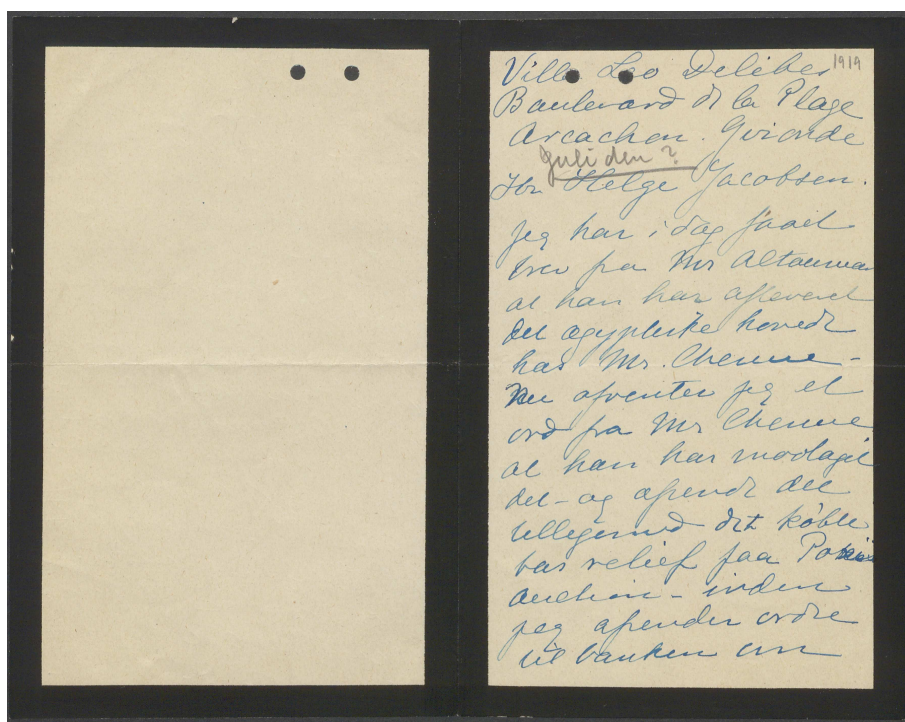 1919
Villa Leo Delibes
Boulevard de la Plage
Arcachon. Gironde
Juli den ?
Hr Helge Jacobsen.
Jeg har i dag faaet
brev fra Mr Altounian
at han har afleveret
det ægyptiske hoved
hos Mr. Chenue –
Nu afventer jeg et
ord fra Mr Chenue
at han har modtaget
det – og afsendt det
tilligemed det købte
bas relief paa
auction – inden
jeg afsender ordre
til banken om